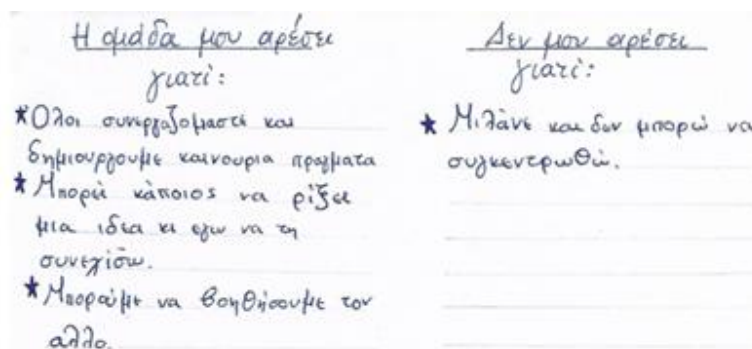 Η ομάδα μου αρέσει
γιατί:
* Όλοι συνεργαζομαστε και
δημιουργουμε καινουρια πραγματα
* Μπορεί κάποιος να ρίξει
μια ιδεα κι εγω να τη
συνεχίσω.
* Μπορούμε να βοηθήσουμε τον
αλλο.
Δεν μου αρέσει
γιατί:
* Μιλάνε και δεν μπορώ να
συγκεντρωθώ.